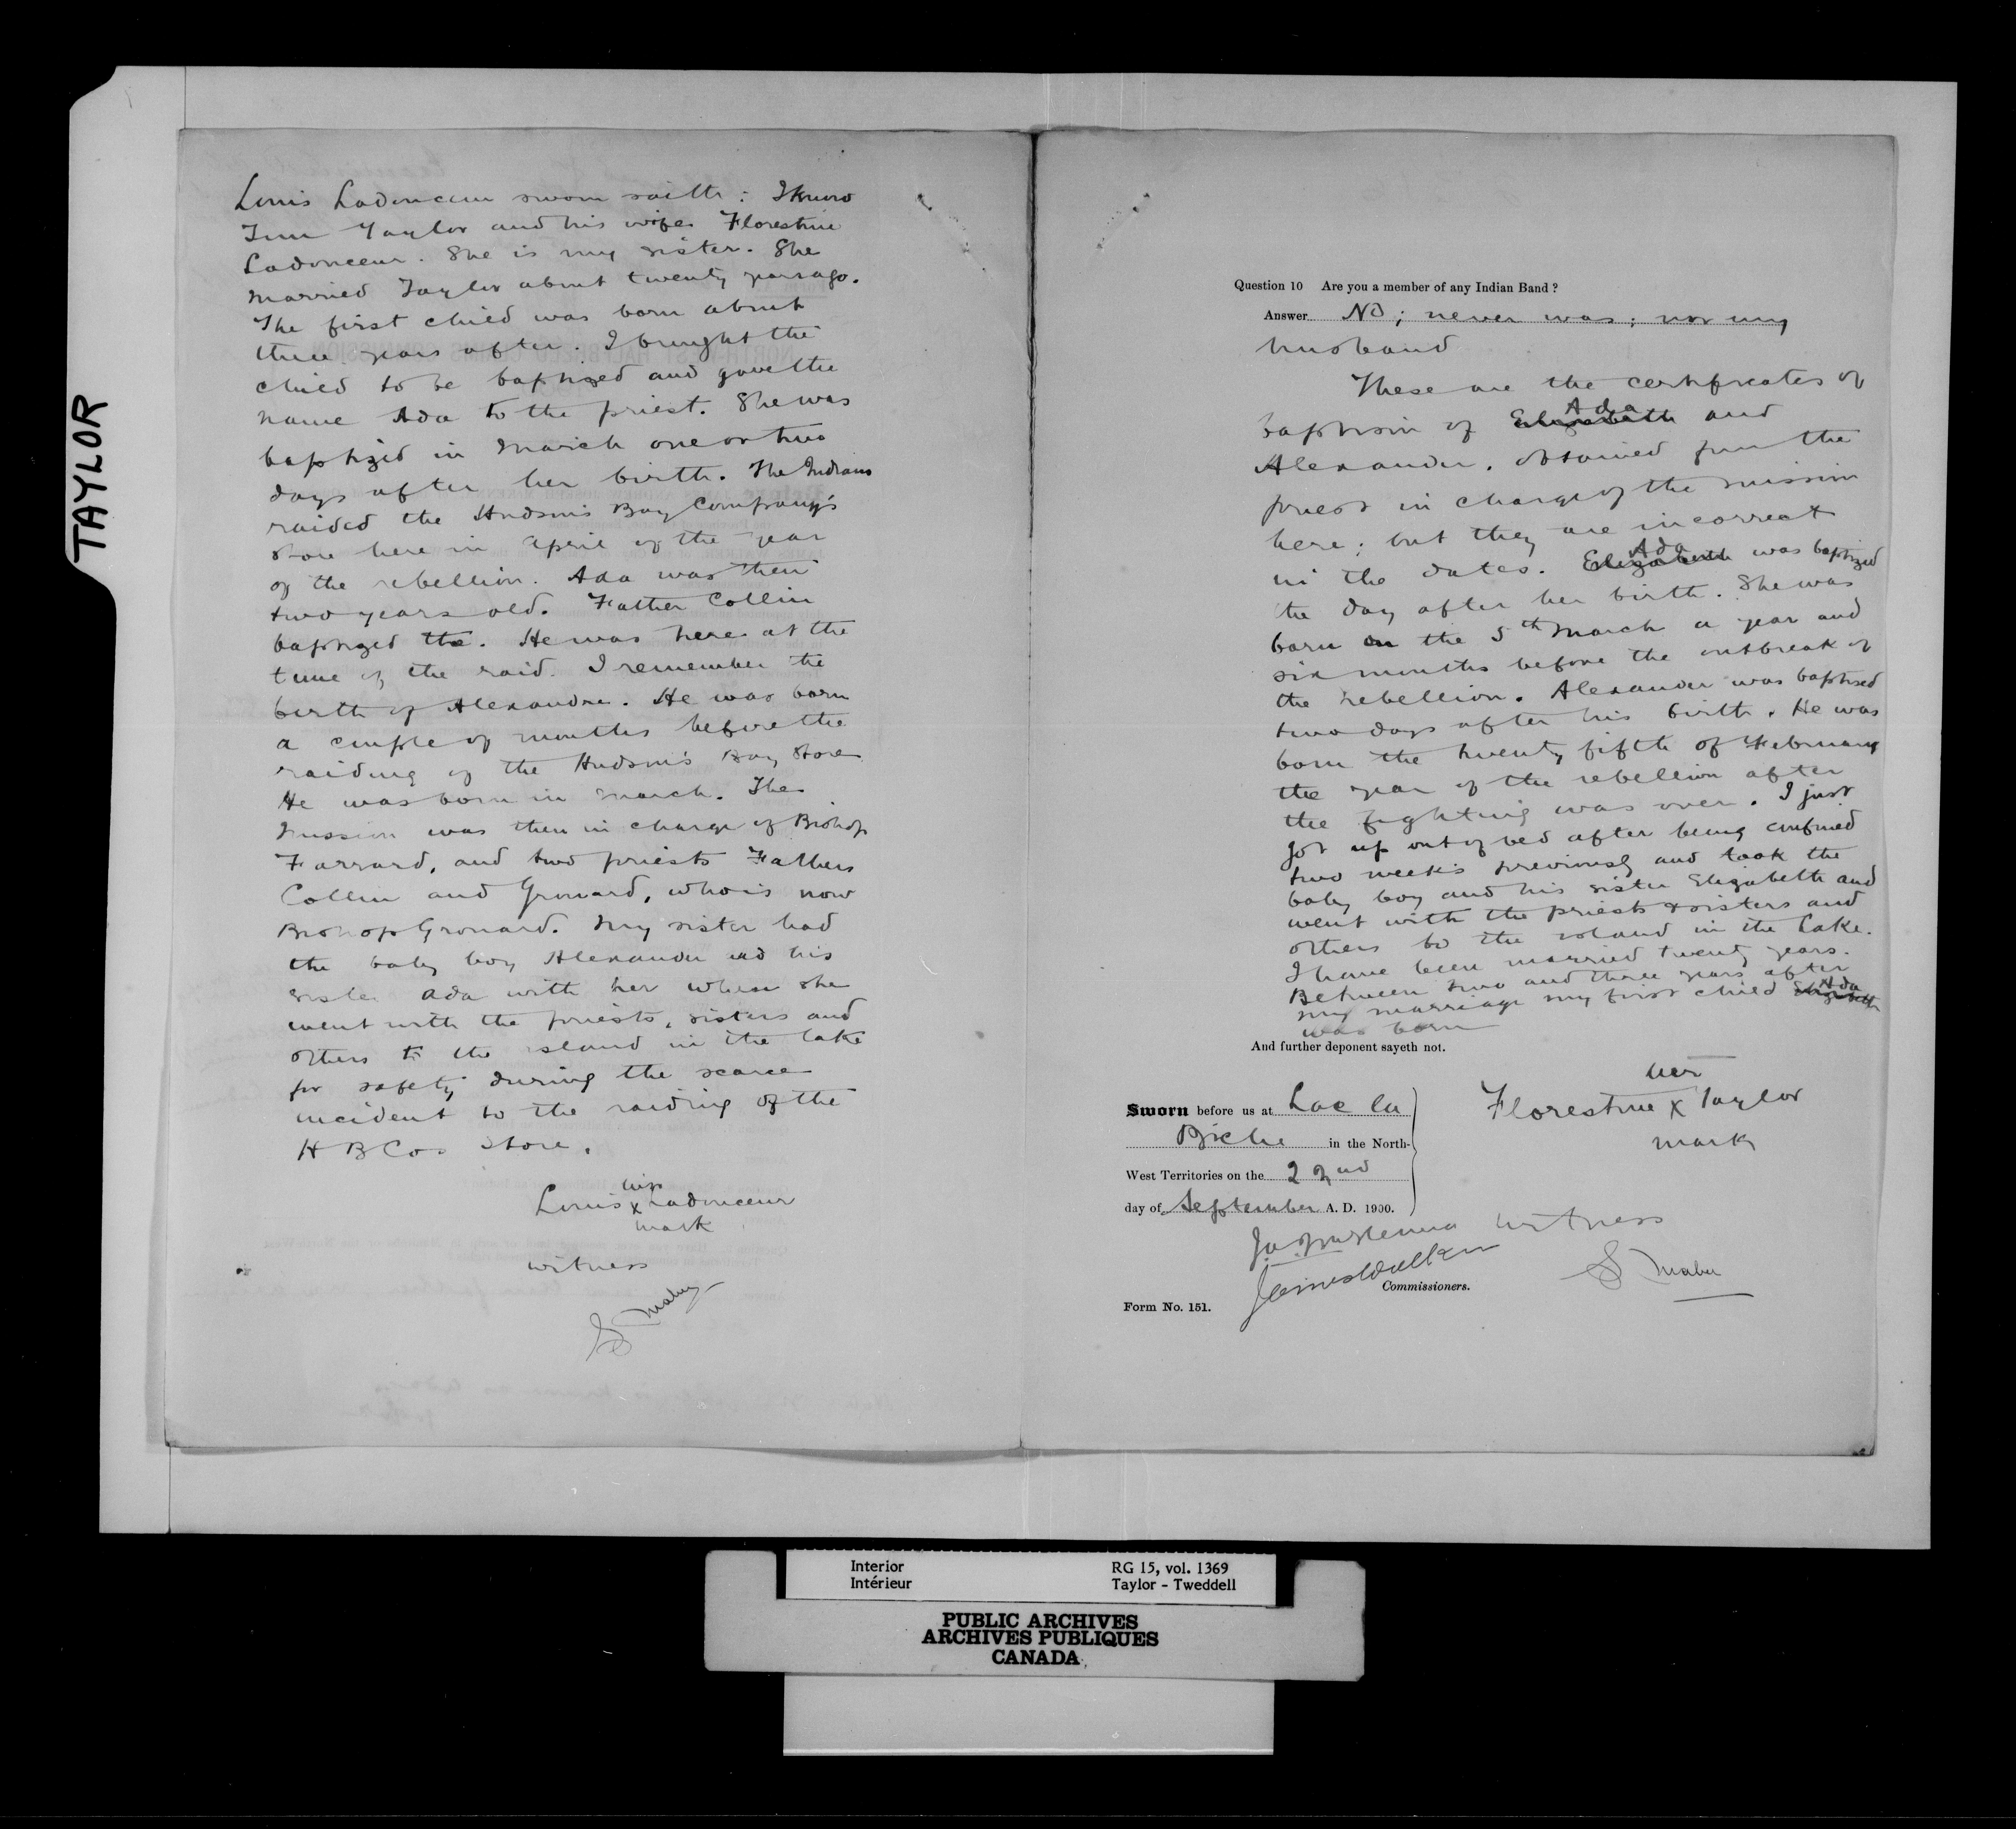 TAYLOR
Louis Ladonceur sworn saith: I know
Tim Taylor and his wife Florestine
Ladonceur. She is my sister. She
married Taylor about twenty years ago.
The first child was born about
three years after. I brought the
child to be baptized and gave the
name Ada to the priest. She was
baptized in March one or two
days after her birth. The Indians
raided the Hudson's Bay Company's
store here in April of the year
of the rebellion. Ada was then
two years old. Father Collin
baptized the. He was here at the
time of the raid. I remember the
birth of Alexandre. He was born
a couple of months before the
raiding of the Hudson's Bay Store
He was born in March. The
mission was then in charge of Bishop
Farrard, and two priests Fathers
Collin and Grouard, who is now
Bishop Grouard. My sister had
the baby boy Alexander and his
sister Ada with her when she
went with the priests, sisters and
others to the island in the lake
for safety during the scare
incident to the raiding of the
H B Cos Store.
his
Louis x Ladonceur
mark
witness
S Maber
Question 10 Are you a member of any Indian Band?
Answer No; never was; nor my
husband
These are the certificates of
Ada
baptism of Elizabeth and
Alexander, obtained from the
priest in charge of the mission
here; but they are incorrect
Ada
in the dates. Elizabeth was baptized
the day after her birth. She was
born on the 5th March a year and
six months before the outbreak of
the rebellion. Alexander was baptised
two days after his birth. He was
born the twenty fifth of February
the year of the rebellion after
the fighting was over. I just
got up out of bed after being confined
two weeks previously and took the
baby boy and his sister Elizabeth and
went with the priests & sisters and
others to the island in the Lake.
I have been married twenty years.
Between two and three years after
Ada
my marriage my first child Elizabeth
was born
And further deponent sayeth not.
her
Florestine x Taylor
mark
Sworn before us at Lac la
Biche in the North-
West Territories on the 22nd
day of September A. D. 1900.
witness
S Maber
James Walker
Commissioners.
Form No. 151.
Interior
Intérieur
RG 15, vol. 1369
Taylor - Tweddell
PUBLIC ARCHIVES
ARCHIVES PUBLIQUES
CANADA